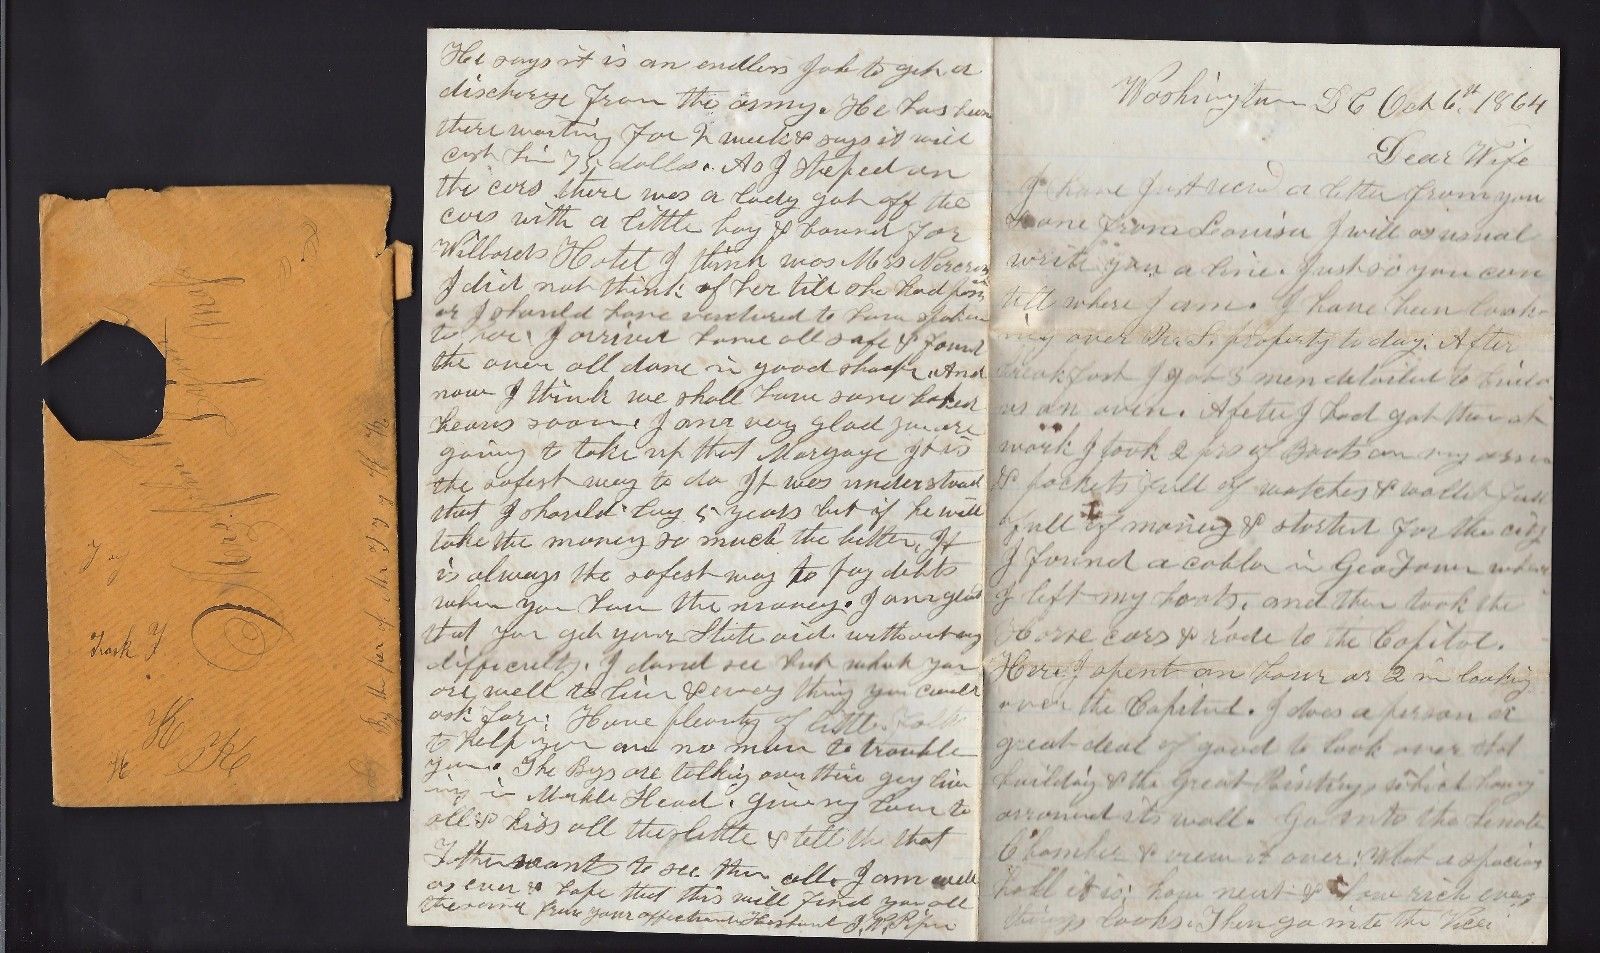 Washington DC Oct 6th 1864
Dear Wife
I have just recd a letter from you
& one from Louisa I will as usual
write you a line. Just so you can
tell where I am. I have been look-
ing over property to day. After
breakfast I got 3 men detailed to build
us an oven. After I had got them at
work I took 2 prs of Boots on my arm
& pockets full of watches & wallet full
full of money & started for the city
I found a cobler in GeoTown where
I left my boots. and then took the
Horse cars & rode to the Capitol.
Here I spent an hour or 2 in looking
over the Capitol. I does a person a
great deal of good to look over that
building & the Great Paintings which hang
arround its wall. Go into the Senate
Chamber & view it over. What a spacious
hall it is; how neat & how rich every
things looks. Then go into the
He says it is an endless Job to get a
discharge from the army. He has been
there waiting for 2 weeks & says it will
cost him 75 dollars. As I steped on
the cars there was a lady got off the
cars with a little boy & bound for
Willards Hotel I think was Mrs
I did not think of her till she had
or I should have ventured to have spoken
to her. I arrived home all safe & found
the oven all done in good shape. And
now I think we shall have some baked
beans soon. I am very glad you are
going to take up that Morgage it is
the safest way to do It was understood
that I should hay 5 years but if he will
take the money so much the better. It
is always the safest way to pay debts
when you have the money. I am glad
that you get your State aid without any
difficulty. I do see but what you
are well to live & every thing you could
ask for. Have plenty of little
to help you and no man to trouble
you. The Boys are talking over their
in Marble Head. Give my love to
all & kiss all the little & tell the that
Father wants to see them all. I am well
as ever & hope that this will find you all
the same from your affectionate Husband J.
Mrs.
John
By the
Frank